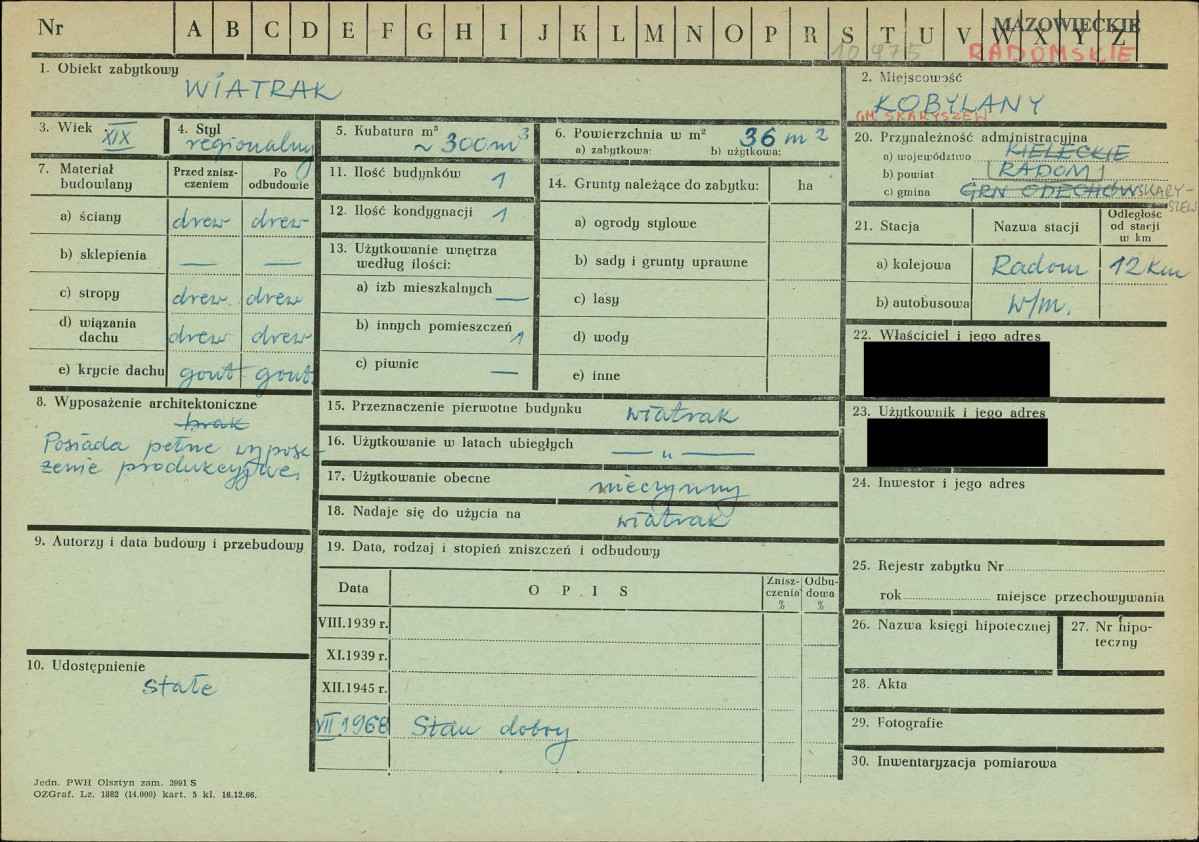 Nr A B C D E F G H I J K L M N O P R S T U V W X Y Z
MAZOWIECKIE
10975 RADOMSKIE
1. Obiekt zabytkowy
WIATRAK
2. Miejscowość
KOBYLANY
GM. SKARYSZEW
3. Wiek XIX
4. Styl
regionalny
5. Kubatura m³
~ 300 m³
6. Powierzchnia w m² 36 m²
a) zabytkowa: b) użytkowa:
20. Przynależność administracyjna
a) województwo KIELECKIE
b) powiat RADOM
c) gmina GRN ODECHÓW SKARY-
SZEW
7. Materiał
budowlany
Przed znisz-
czeniem
Po
odbudowie
a) ściany drew drew
b) sklepienia — —
c) stropy drew. drew
d) wiązania
dachu drew drew
e) krycie dachu gont gont
11. Ilość budynków 1
12. Ilość kondygnacji 1
13. Użytkowanie wnętrza
według ilości:
a) izb mieszkalnych —
b) innych pomieszczeń 1
c) piwnic —
14. Grunty należące do zabytku: ha
a) ogrody stylowe
b) sady i grunty uprawne
c) lasy
d) wody
e) inne
21. Stacja Nazwa stacji
Odległość
od stacji
w km
a) kolejowa Radom 12 km
b) autobusowa w/m.
22. Właściciel i jego adres
23. Użytkownik i jego adres
24. Inwestor i jego adres
8. Wyposażenie architektoniczne
brak
Posiada pełne wyposa-
żenie produkcyjne.
15. Przeznaczenie pierwotne budynku wiatrak
16. Użytkowanie w latach ubiegłych — „ —
17. Użytkowanie obecne nieczynny
18. Nadaje się do użycia na wiatrak
9. Autorzy i data budowy i przebudowy
19. Data, rodzaj i stopień zniszczeń i odbudowy
Data OPIS
Znisz-
czenia
%
Odbu-
dowa
%
VIII.1939 r.
XI.1939 r.
XII.1945 r.
VII.1968 Stan dobry
10. Udostępnienie
stałe
25. Rejestr zabytku Nr
rok miejsce przechowywania
26. Nazwa księgi hipotecznej
27. Nr hipo-
teczny
28. Akta
29. Fotografie
30. Inwentaryzacja pomiarowa
Jedn. PWH Olsztyn zam. 3991 S
OZGraf. Lz. 1882 (14.000) kart. 5 kl. 16.12.66.